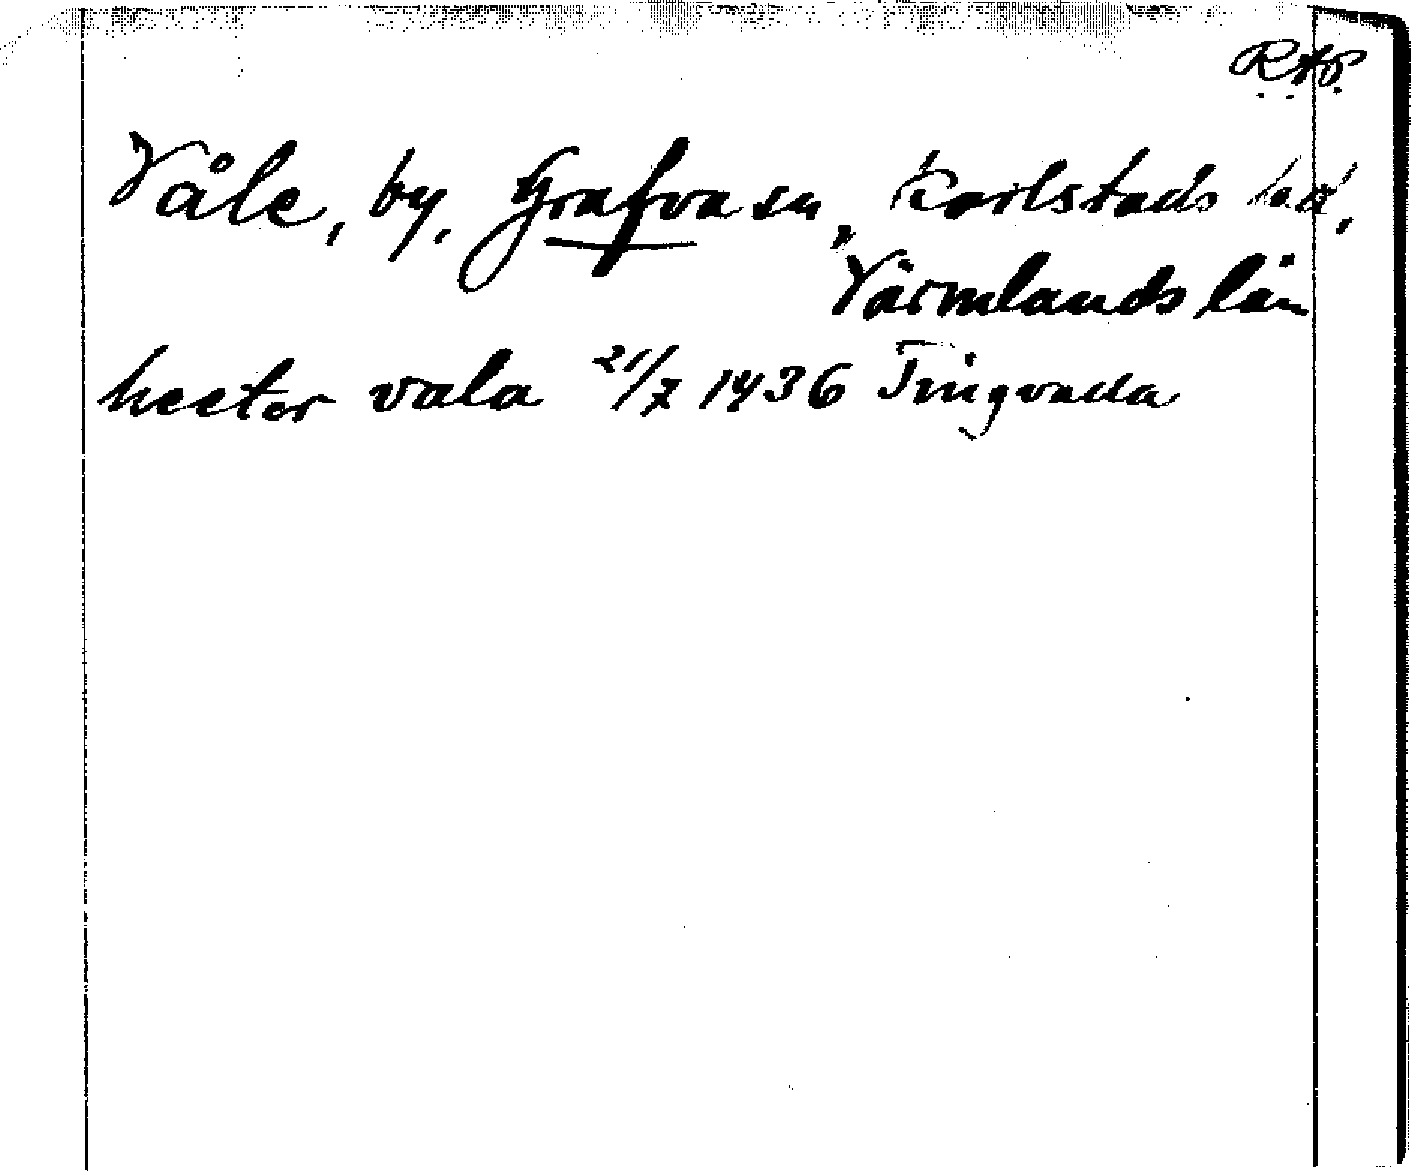 R.A.P.
Våle, by, Grafva sn, Karlstads hd,
Värmlands län
heeter vala 21/7 1436 Tingvalla